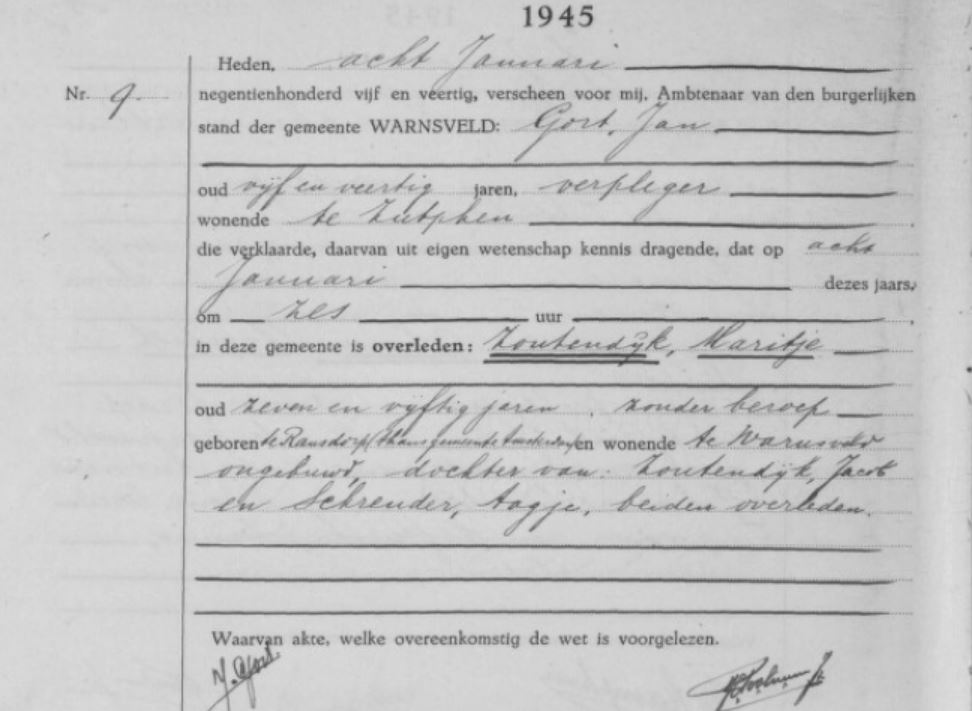 1945
Heden, acht Januari
Nr. 9.
negentienhonderd vijf en veertig, verscheen voor mij, Ambtenaar van den burgerlijken
stand der gemeente WARNSVELD: Gort, Jan
oud vijf en veertig jaren, verpleger
wonende te Zutphen
die verklaarde, daarvan uit eigen wetenschap kennis dragende, dat op acht
Januari dezes jaars,
om zes uur
in deze gemeente is overleden: Zoutendijk, Maritje
oud zeven en vijftig jaren, zonder beroep
geboren te Ransdorp (thans gemeente Amsterdam) en wonende te Warnsveld
ongehuwd, dochter van: Zoutendijk, Jacob
en Schreuder, Aagje, beiden overleden.
Waarvan akte, welke overeenkomstig de wet is voorgelezen.
J. Gort